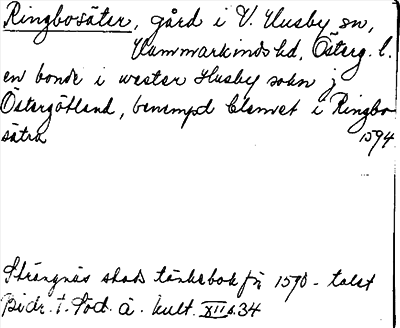 Ringbosäter, gård i V. Husby sn,
Hammarkinds hd, Österg. l.
en bonde i wester Husby sokn j
Östergötland, benempd Clemet i Ringbo
sätra 1594
Strängnäs stads tänkebok för 1590-talet
Bidr. t. Söd. ä. kult. XII s. 34